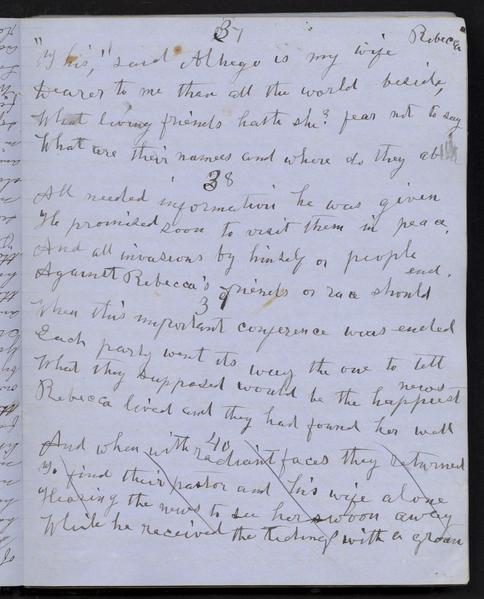 37 Rebecca
"This," said Alhego is my wife
Dearer to me then all the world beside,
What living friends hath she? fear not to say
What are their names and where do they abide
38
All needed information he was given
He promised soon to visit them in peace,
And all invasions by himself or people
Against Rebecca's friends or race should end.
39
When this important conference was ended
Each party went its way the one to tell
What they supposed would be the happiest news
Rebecca lived and they had found her well
40
And when with radiant faces they returned
To find their pastor and his wife alone
Hearing the news to see her swoon away
While he received the tidings with a groan